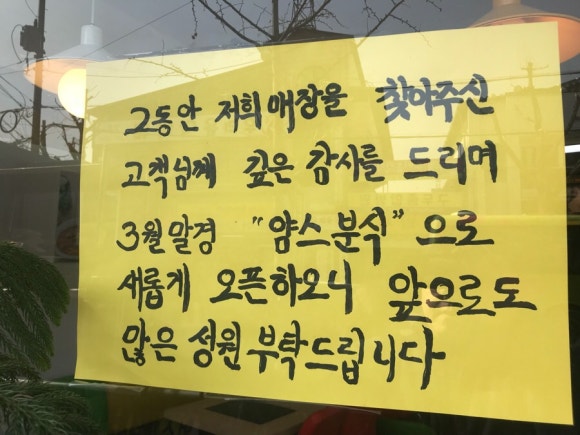 그동안 저희 매장을 찾아주신
고객님께 깊은 감사를 드리며
3월말경 "얌스분식"으로
새롭게 오픈하오니 앞으로도
많은 성원 부탁드립니다